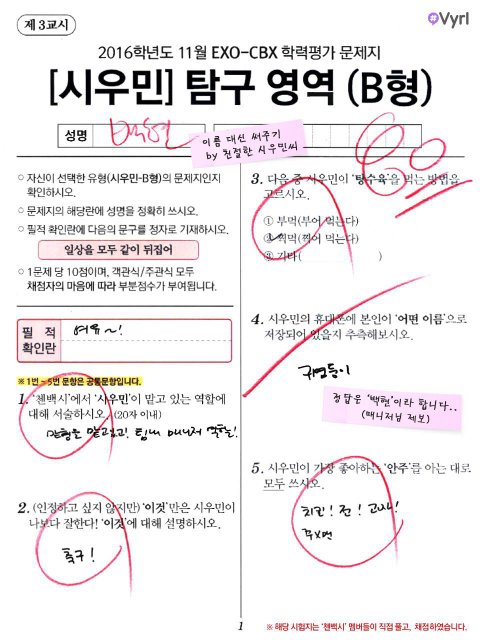 #Vyrl
제 3교시
2016학년도 11월 EXO-CBX 학력평가 문제지
[시우민] 탐구 영역 (B형)
성명
이름 대신 써주기
by 친절한 시우민씨
60
○ 자신이 선택한 유형(시우민-B형)의 문제지인지
확인하시오.
○ 문제지의 해당란에 성명을 정확히 쓰시오.
○ 필적 확인란에 다음의 문구를 정자로 기재하시오.
일상을 모두 같이 뒤집어
○ 1문제 당 10점이며, 객관식/주관식 모두
채점자의 마음에 따라 부분점수가 부여됩니다.
필 적
확인란
여유~!
※ 1번~5번 문항은 공통문항입니다.
1. '첸백시'에서 '시우민'이 맡고 있는 역할에
대해 서술하시오. (20자 이내)
맏형을 맡고있고! 팀내 매니저 역할을!
2. (인정하고 싶지 않지만) '이것'만은 시우민이
나보다 잘한다! '이것'에 대해 설명하시오.
축구!
3. 다음 중 시우민이 '탕수육'을 먹는 방법을
고르시오.
① 부먹(부어 먹는다)
② 찍먹(찍어 먹는다)
③ 기타( )
4. 시우민의 휴대폰에 본인이 '어떤 이름'으로
저장되어 있을지 추측해보시오.
귀염둥이
정답은 '백현'이라 합니다..
(매니저님 제보)
5. 시우민이 가장 좋아하는 '안주'를 아는 대로
모두 쓰시오.
치킨! 전!
1
※ 해당 시험지는 '첸백시' 멤버들이 직접 풀고, 채점하였습니다.